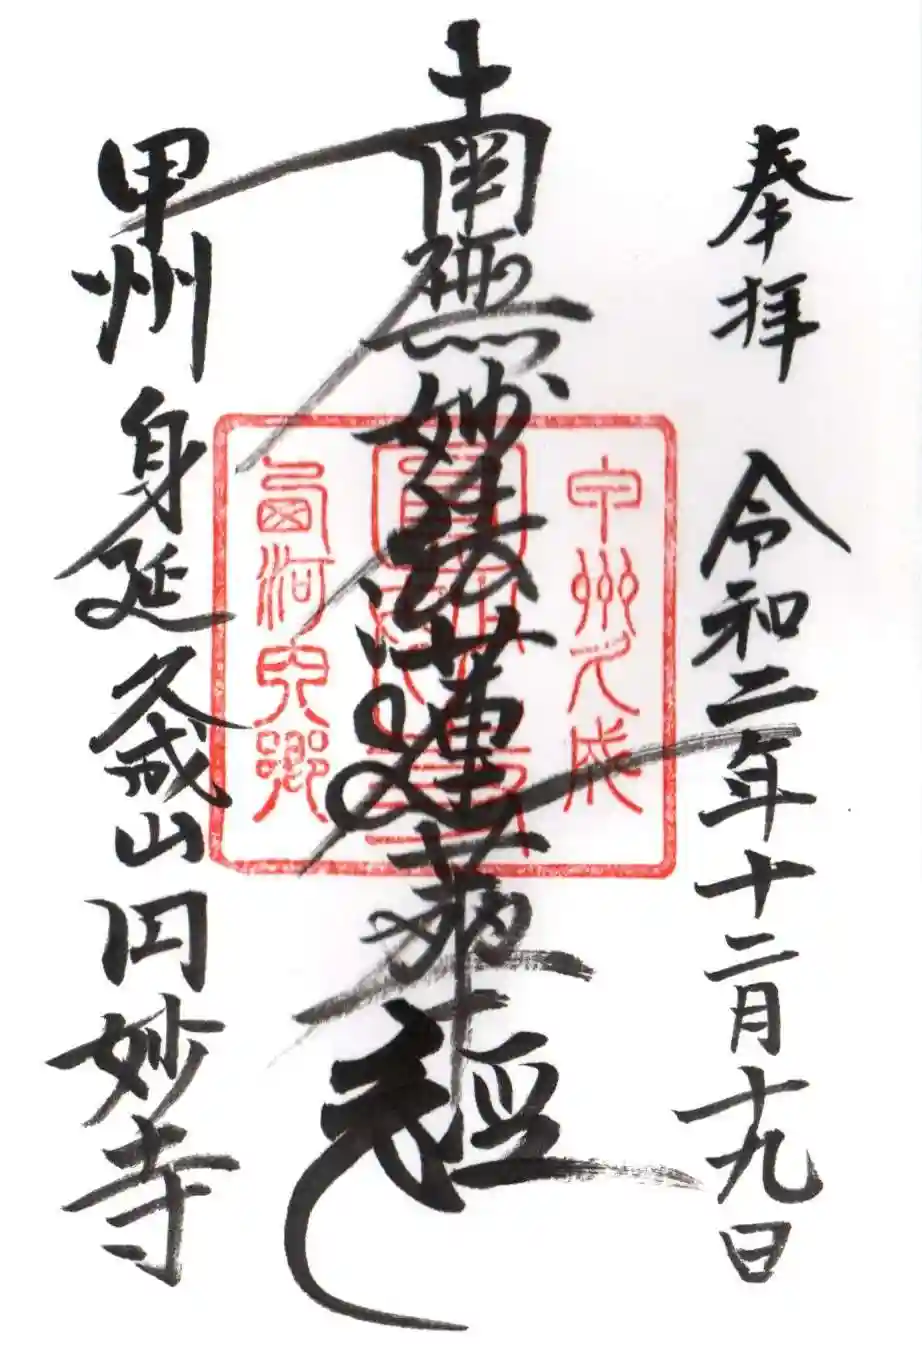 奉拝 令和二年十二月十九日
南無妙法蓮華経
甲州 身延 久成山 円妙寺
甲州久成
西河内郷